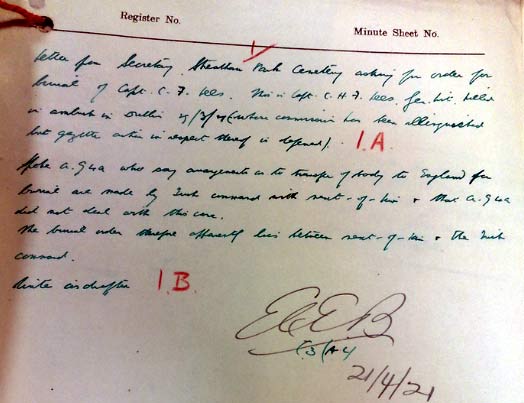 Register No.
Minute Sheet No.
1
Letter from Secretary, Streatham Park Cemetery asking for order for
burial of Capt. C. F. Lees. This is Capt. C. H. F. Lees, Gen. List, killed
in ambush in Dublin
but gazette action in respect thereof is deferred). 1.A.
Spoke A.G.4a who say arrangements as to transfer of body to England for
burial are made by Irish command with next-of-kin & that A.G.4a
did not deal with this case.
The burial order therefore apparently lies between next-of-kin & the Irish
command.
Write as drafted 1.B.
21/4/21